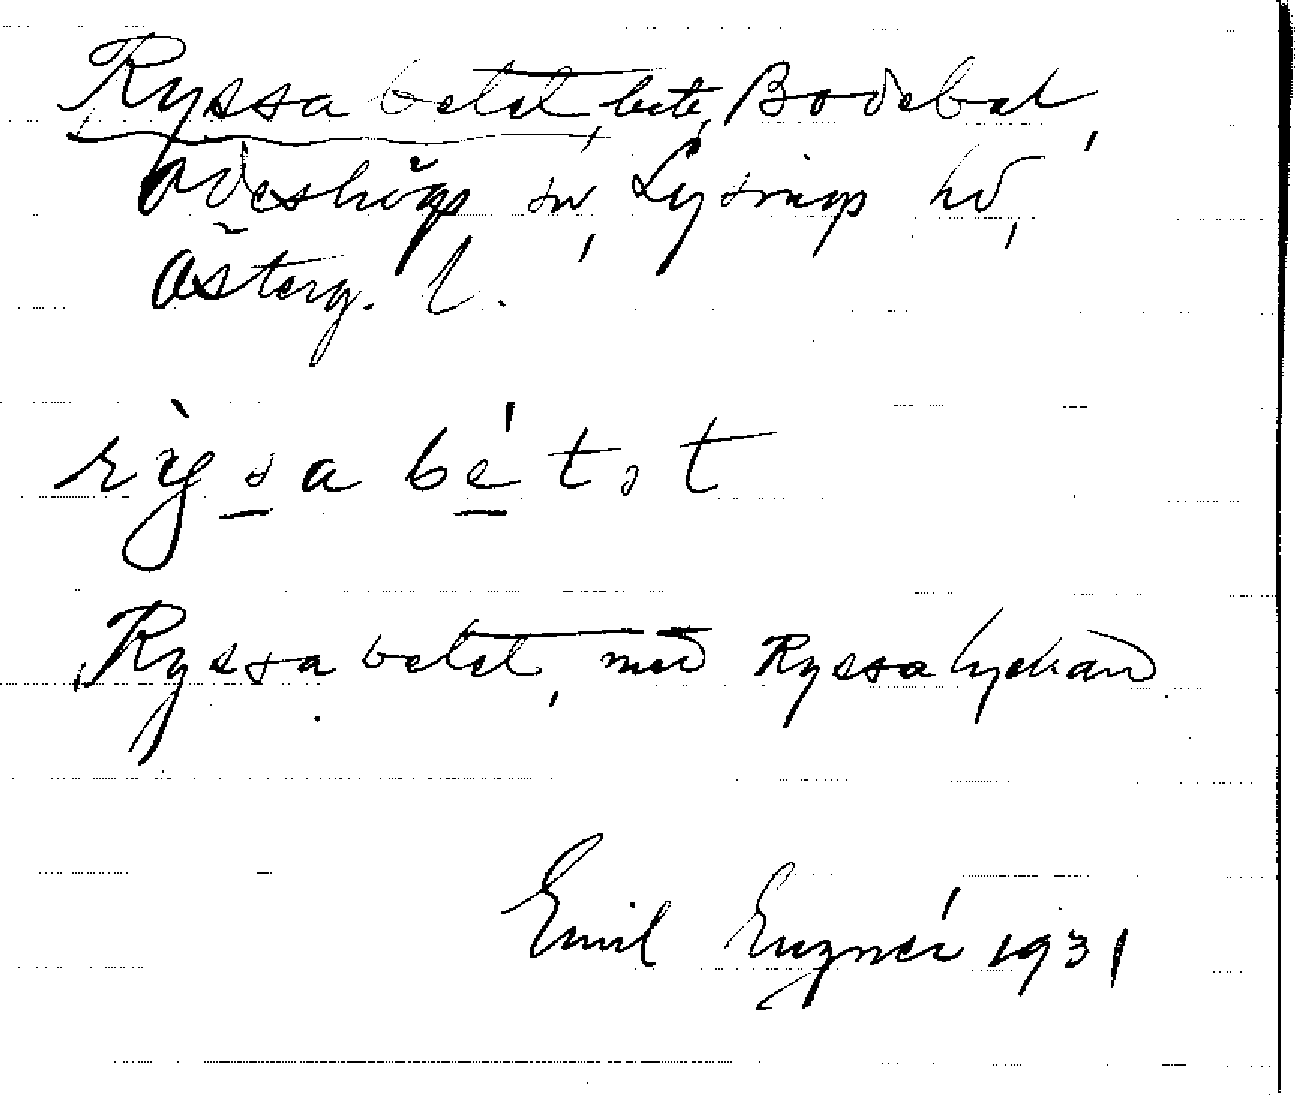 Ryssabetet, bete, Bodebol,
Ödeshögs sn, Lysings hd,
Österg. l.
rỳsabétət
Ryssabetet, med Ryssalyckan
Emil 1931